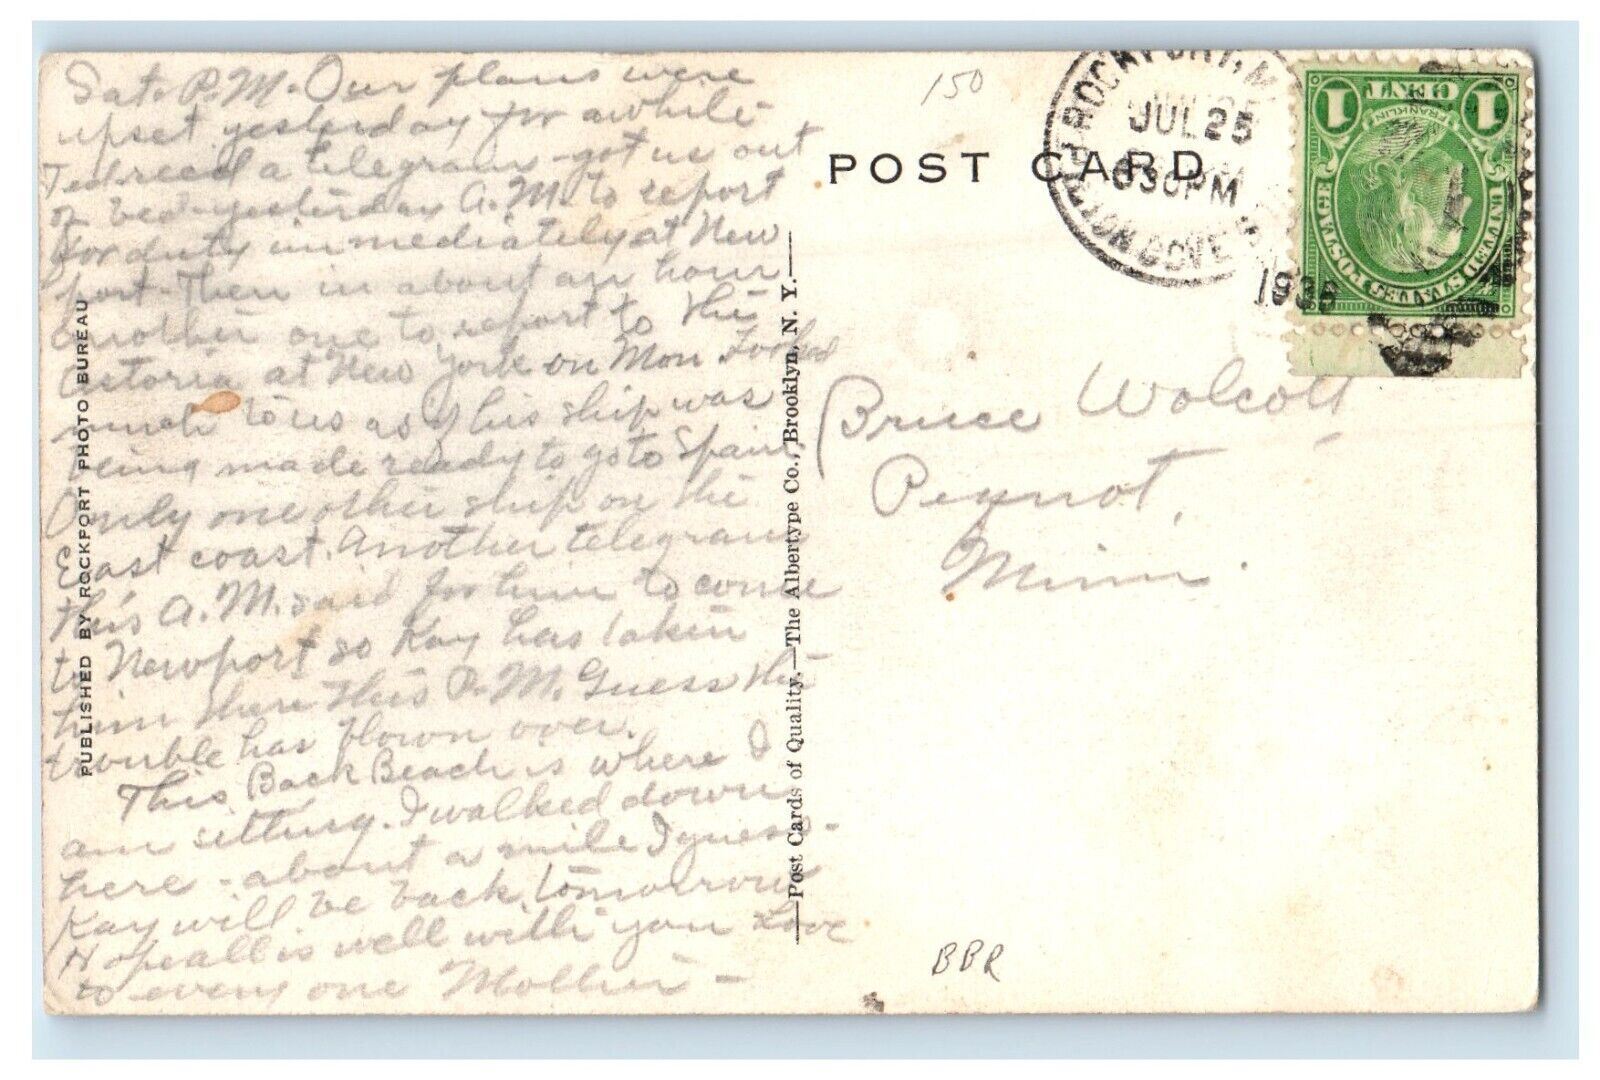 Sat. P.M. Our plans were
upset yesterday for awhile
Ted recd a telegram - got us out
of bed - yesterday A.M. to report
for duty immediately at New
port - Then in about an hour
another one to report to the
Astoria at New York on Mon Looked
much to us as if his ship was
being made ready to go to Spain.
Only one other ship on the
East coast. Another telegram
this A.M. said for him to come
to Newport so Kay has taken
him there this P.M. Guess the
trouble has blown over.
This Back Beach is where I
am sitting. I walked down
here - about a mile I guess -
Kay will be back tomorrow
Hope all is well with you Love
to every one Mother -
PUBLISHED BY ROCKPORT PHOTO BUREAU
—Post Cards of Quality.—The Albertype Co., Brooklyn, N. Y.—
150
POST CARD
ROCKPORT, M
JUL 25
630 PM
COVE
193
1 CENT 1
FRANKLIN
UNITED STATES POSTAGE
Bruce Wolcott
Peynot,
Minn.
BBR